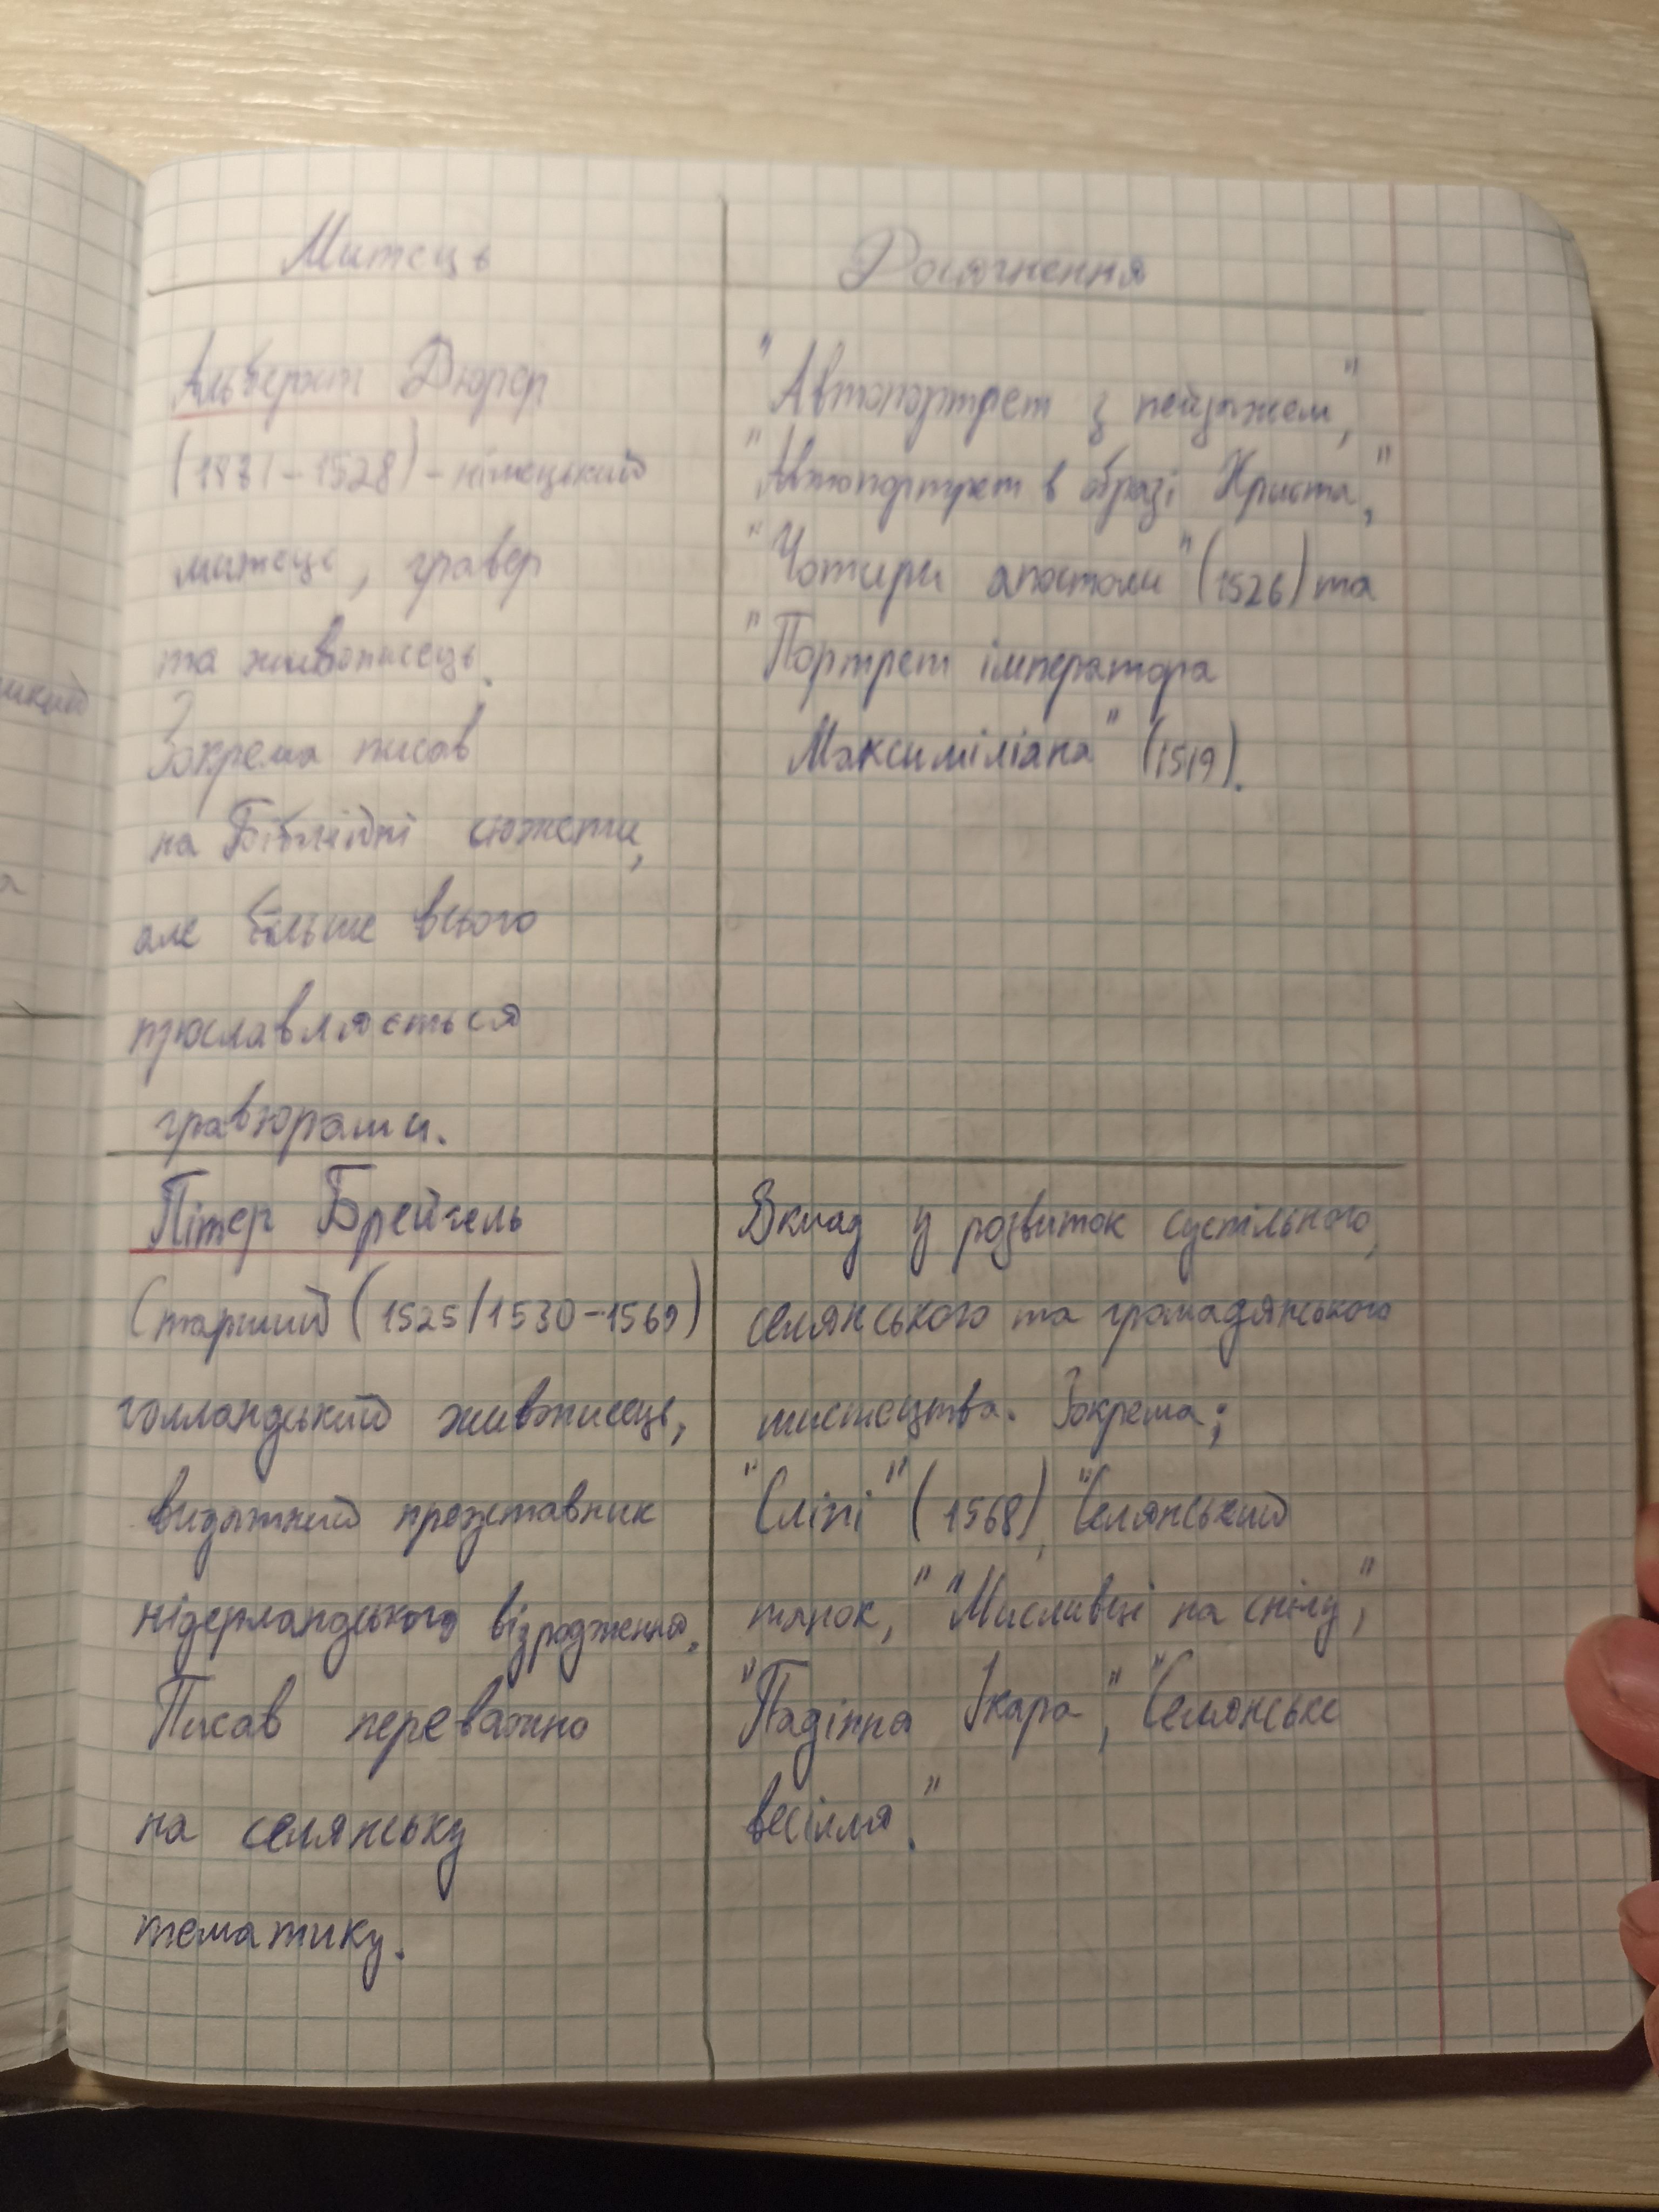 Митець
Досягнення
Альберхт Дюрер
(1471-1528)-німецький
митець, гравер
та живописець.
Зокрема писав
на Біблійні сюжети,
але більше всього
прославляється
гравюрами.
"Автопортрет з пейзажем",
"Автопортрет в образі Христа",
"Чотири апостоли" (1526) та
"Портрет імператора
Максиміліана" (1519).
Пітер Брейгель
Старший (1525/1530-1569)
голландський живописець,
видатний представник
нідерландського відродження.
Писав переважно
на селянську
тематику.
Вклад у розвиток суспільного,
селянського та громадянського
мистецтва. Зокрема;
"Сліпі" (1568), "Селянський
танок", "Мисливці на снігу",
"Падіння Ікара", "Селянське
весілля".